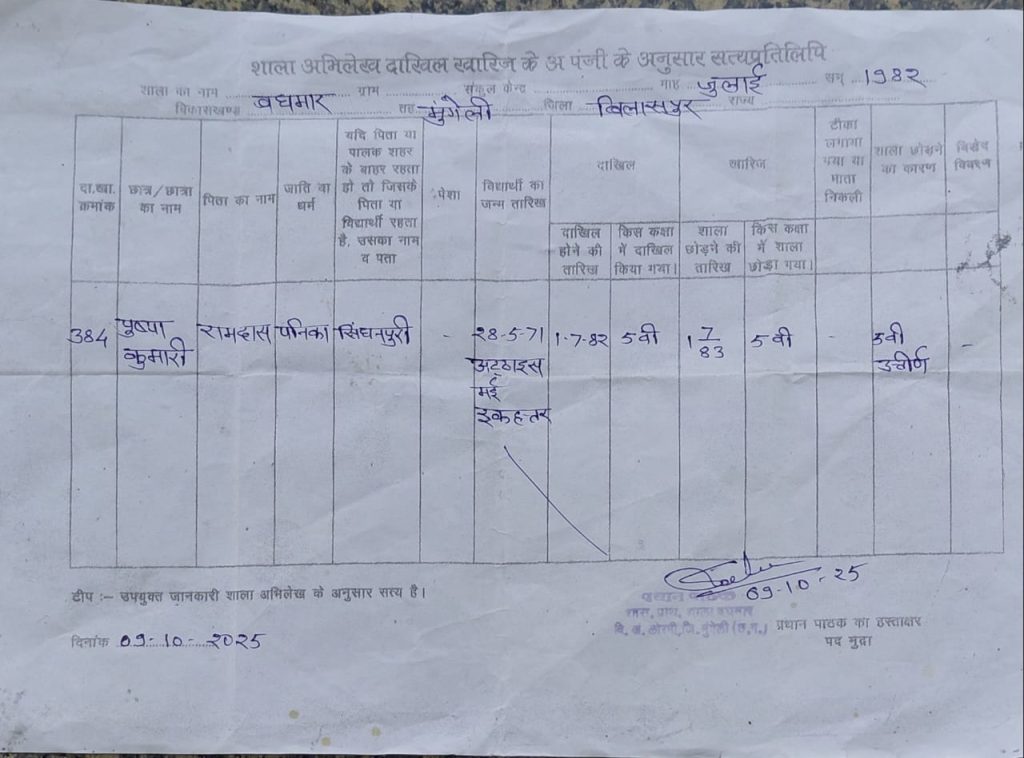 शाला अभिलेख दाखिल खारिज के अ पंजी के अनुसार सत्यप्रतिलिपि
शाला का नाम ग्राम संकुल केन्द्र माह जुलाई सन् 1982
विकासखण्ड बघमार तह. मुंगेली जिला बिलासपुर राज्य
दा.खा. क्रमांक
छात्र/छात्रा का नाम
पिता का नाम
जाति वा धर्म
यदि पिता या पालक शहर के बाहर रहता हो तो जिसके पिता या विद्यार्थी रहता है, उसका नाम व पता
पेशा
विद्यार्थी का जन्म तारिख
दाखिल
खारिज
टीका लगाया गया या माता निकली
शाला छोड़ने का कारण
विशेष विवरण
दाखिल होने की तारिख
किस कक्षा में दाखिल किया गया।
शाला छोड़ने की तारिख
किस कक्षा में शाला छोड़ा गया।
384 पुष्पा कुमारी रामदास पनिका सिंघनपुरी - 28-5-71 1-7-82 5वी 1 7/83 5वी - 5वी उत्तीर्ण -
अट्ठाइस
मई
इकहत्तर
टीप :- उपयुक्त जानकारी शाला अभिलेख के अनुसार सत्य है।
09-10-25
प्रधान पाठक
शास. प्राथ. शाला बघमार
जि. मुंगेली (छ.ग.)
दिनांक 09-10-2025
प्रधान पाठक का हस्ताक्षर
पद मुद्रा